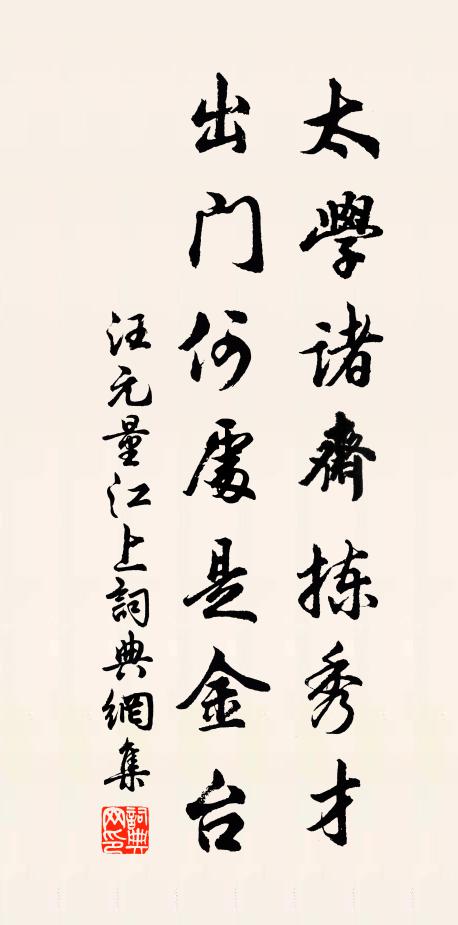 太學諸齋拣秀才
出門何處是金台
汪元量江上詞典網集
詞典网印